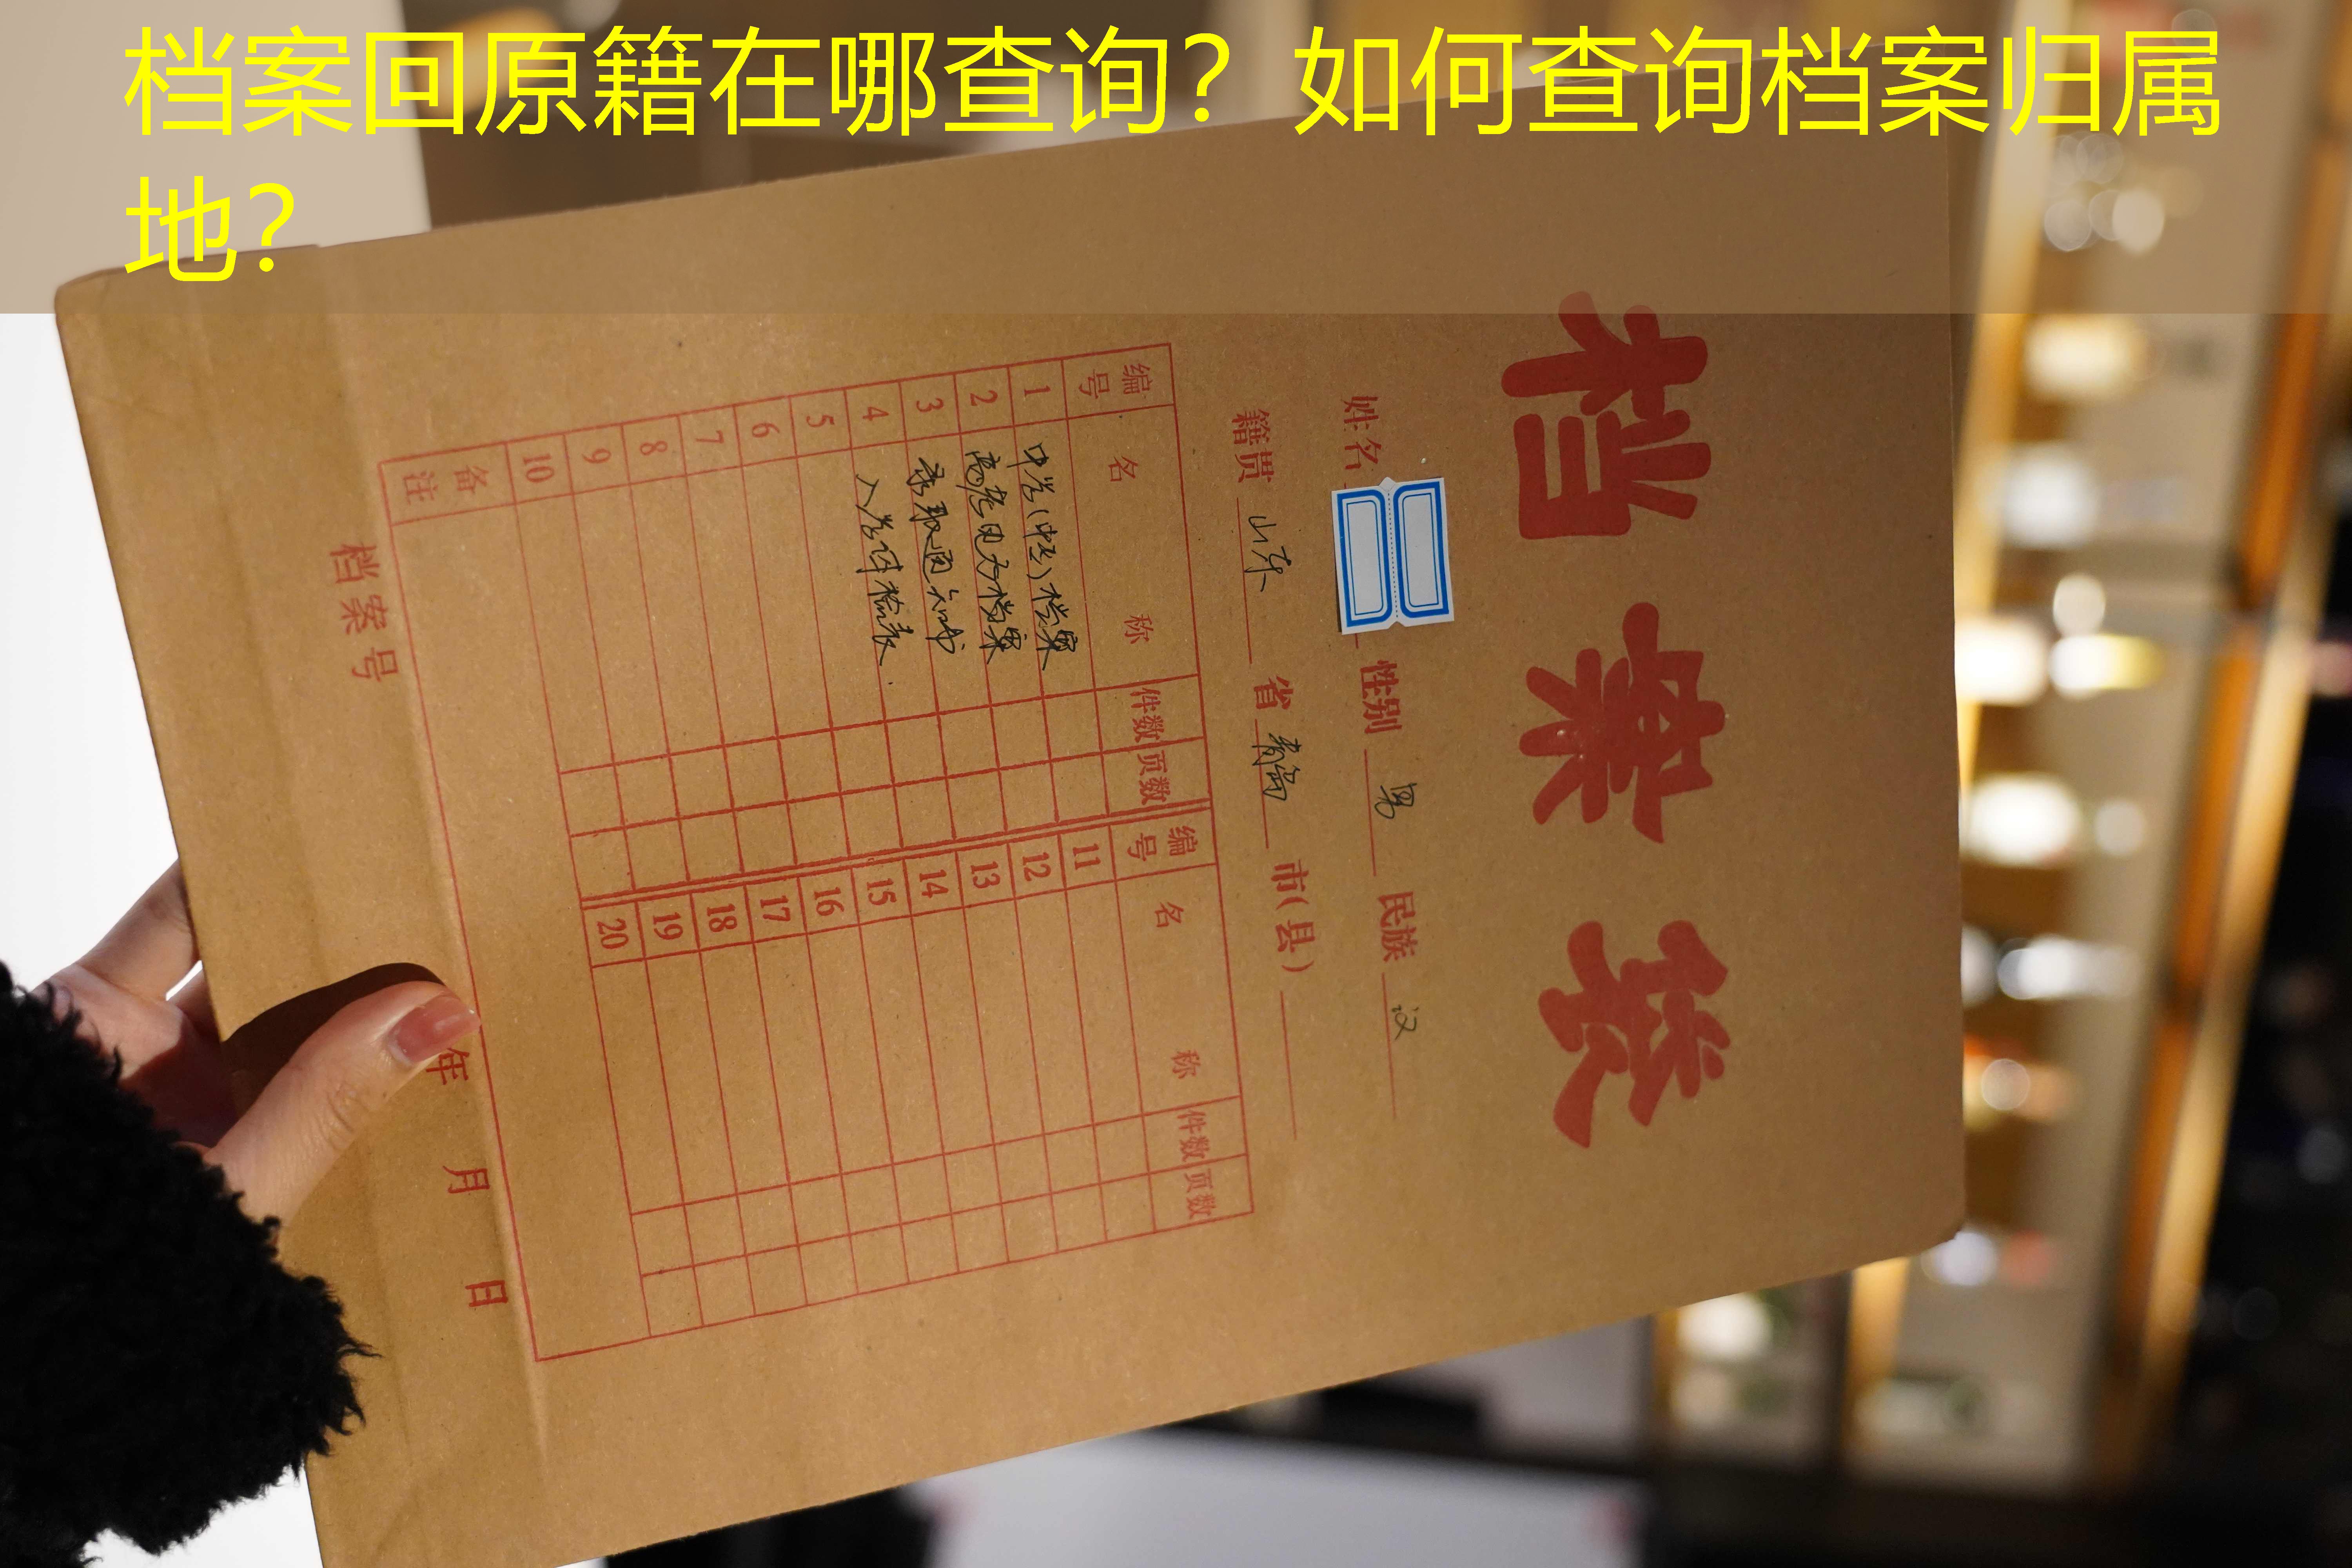 档案回原籍在哪查询？如何查询档案归属
地？
档案袋
姓名 性别 男 民族 汉
籍贯 山东 省 青岛 市(县)
编号 名称 件数 页数 编号 名称 件数 页数
1 中学(中专)档案 11
2 高考电子档案 12
3 录取通知书 13
4 入学体检表 14
5 15
6 16
7 17
8 18
9 19
10 20
备注
档案号 年 月 日